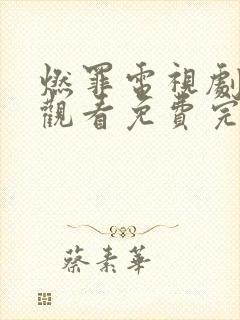 燃罪電視劇
觀看免費完
蔡素華